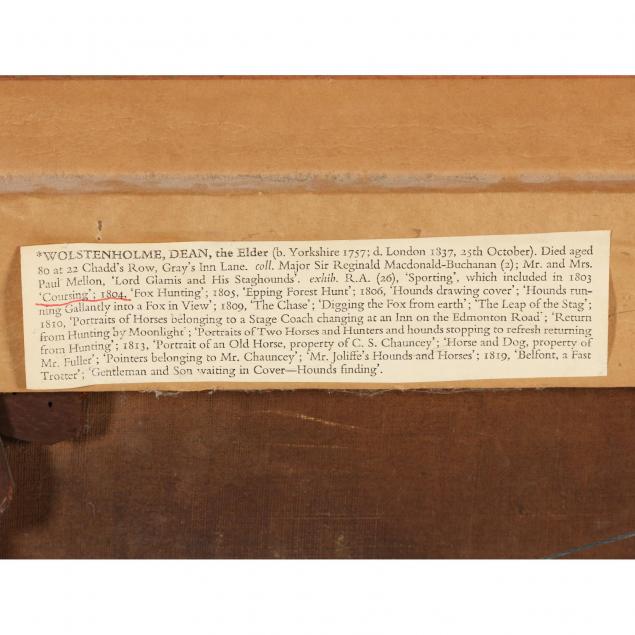 *WOLSTENHOLME, DEAN, the Elder (b. Yorkshire 1757; d. London 1837, 25th October). Died aged
80 at 22 Chadd's Row, Gray's Inn Lane. coll. Major Sir Reginald Macdonald-Buchanan (2); Mr. and Mrs.
Paul Mellon, 'Lord Glamis and His Staghounds'. exhib. R.A. (26), 'Sporting', which included in 1803
'Coursing'; 1804, 'Fox Hunting'; 1805, 'Epping Forest Hunt'; 1806, 'Hounds drawing cover'; 'Hounds run-
ning Gallantly into a Fox in View'; 1809, 'The Chase'; 'Digging the Fox from earth'; 'The Leap of the Stag';
1810, 'Portraits of Horses belonging to a Stage Coach changing at an Inn on the Edmonton Road'; 'Return
from Hunting by Moonlight'; 'Portraits of Two Horses and Hunters and hounds stopping to refresh returning
from Hunting'; 1813, 'Portrait of an Old Horse, property of C. S. Chauncey'; 'Horse and Dog, property of
Mr. Fuller'; 'Pointers belonging to Mr. Chauncey'; 'Mr. Joliffe's Hounds and Horses'; 1819, 'Belfont, a Fast
Trotter'; 'Gentleman and Son waiting in Cover—Hounds finding'.